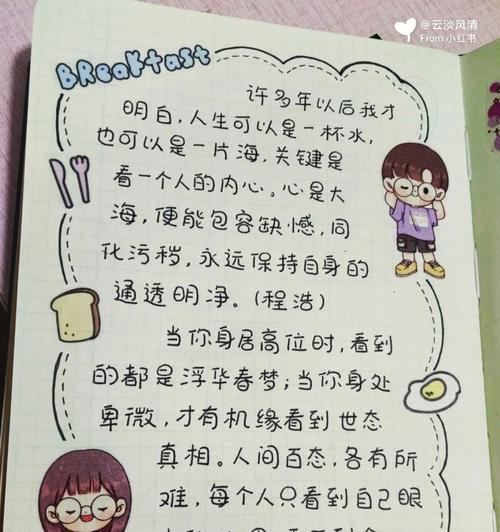 @云淡风清
From 小红书
BReakfast
许多年以后我才
明白,人生可以是一杯水,
也可以是一片海,关键是
看一个人的内心。心是大
海,便能包容缺憾,同
化污秽,永远保持自身的
通透明净。(程浩)
当你身居高位时,看到
的都是浮华春梦;当你身处
卑微,才有机缘看到世态
真相。人间百态,各有所
难,每个人只看到自己眼